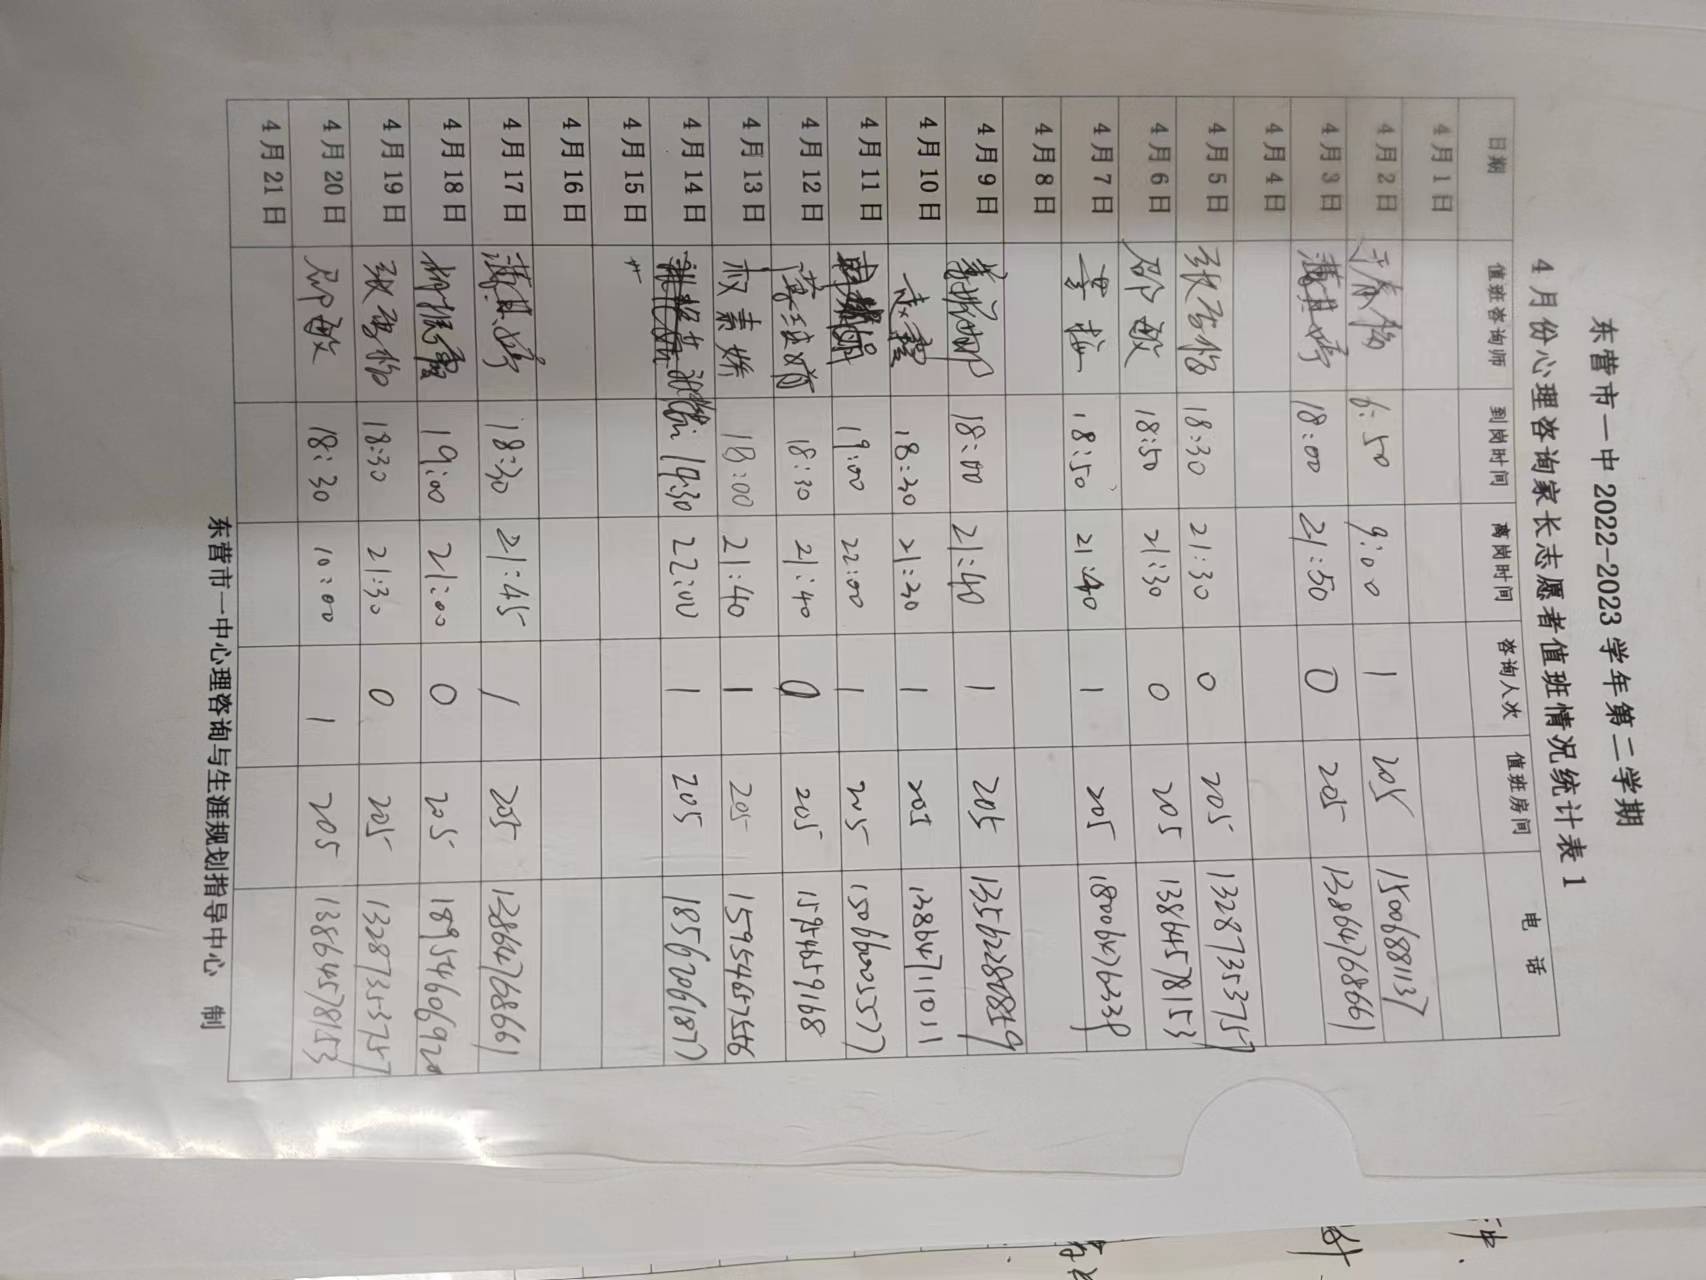 东营市一中 2022-2023 学年第二学期
4 月份心理咨询家长志愿者值班情况统计表 1
日期 值班咨询师 到岗时间 离岗时间 咨询人次 值班房间 电 话
4 月 1 日
4 月 2 日 6:50 9:00 1 205 15006881137
4 月 3 日 18:00 21:50 0 205 13864768661
4 月 4 日
4 月 5 日 18:30 21:30 0 205 13287353757
4 月 6 日 邵敏 18:50 21:30 0 205 13864578153
4 月 7 日 18:50 21:40 1 205 18006476338
4 月 8 日
4 月 9 日 18:00 21:40 1 205 13562284859
4 月 10 日 18:30 21:30 1 205 13864711011
4 月 11 日 19:00 22:00 1 205
4 月 12 日 18:30 21:40 0 205 15954659168
4 月 13 日 18:00 21:40 1 205 15954657556
4 月 14 日 19:30 22:00 1 205 18562061877
4 月 15 日
4 月 16 日
4 月 17 日 18:30 21:45 1 205 13864768661
4 月 18 日 19:00 21:00 0 205 18954606920
4 月 19 日 18:30 21:30 0 205 13287353757
4 月 20 日 邵敏 18:30 10:00 1 205 13864578153
4 月 21 日
东营市一中心理咨询与生涯规划指导中心 制